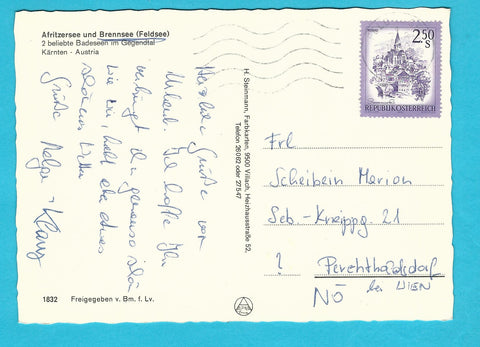 Afritzersee und Brennsee (Feldsee)
2 beliebte Badeseen im Gegendtal
Kärnten - Austria
Herzliche Grüße vom
Urlaub. Ich hoffe Ihr
verbringt ihn genauso schön
wie wir, habt aber etwas
schöneres Wetter
Grüße Helga + Klaus
1832 Freigegeben v. Bm. f. Lv.
H. Steinmann, Farbkarten, 9500 Villach, Heizhausstraße 52,
Telefon 26082 oder 27547
2.50
S
REPUBLIK ÖSTERREICH
Frl
Scheibein Marion
Seb.-Kneippg. 21
? Perchtholdsdorf
NÖ bei WIEN